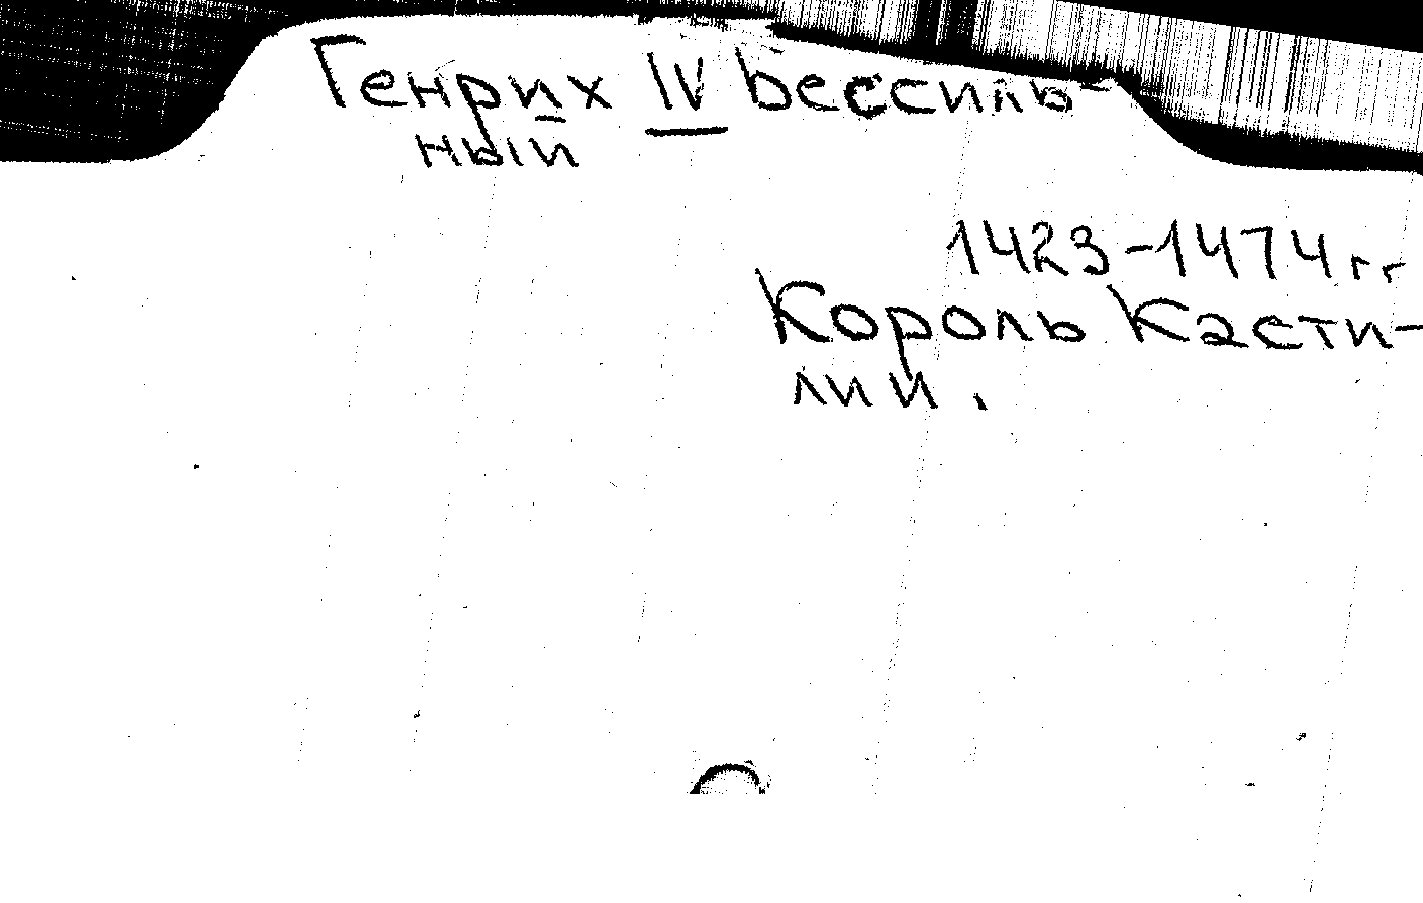 Генрих IV Бессиль-
ный
1423-1474 гг
Король Касти-
лии.